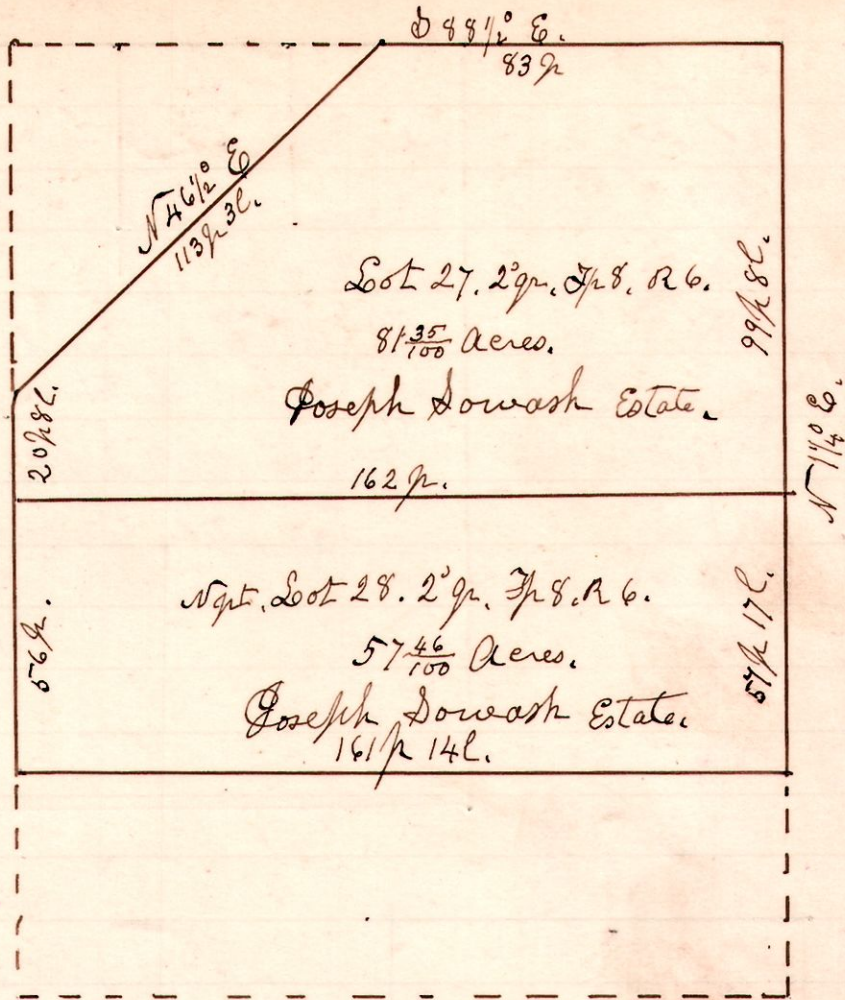 S 88 1/2° E.
83 p
N 46 1/2° E
113 p 3 l.
Lot 27. 2° qr. Tp 8. R 6.
81 35/100 Acres.
Joseph Sowash Estate.
99 p 8 l.
N 1 1/4° E.
20 p 8 l.
162 p.
56 p.
N pt. Lot 28. 2° qr. Tp 8. R 6.
57 46/100 Acres.
Joseph Sowash Estate.
57 p 17 l.
161 p 14 l.